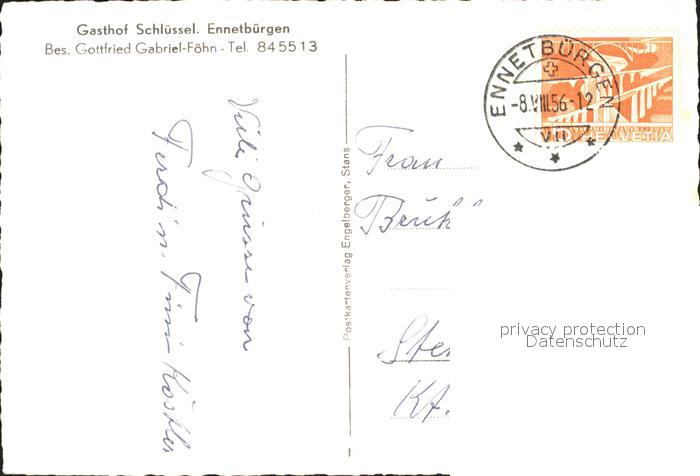 Gasthof Schlüssel. Ennetbürgen
Bes. Gottfried Gabriel-Föhn - Tel. 845513
Viele Grüsse von
Ferdi u. Timi
Postkartenverlag Engelberger, Stans
ENNETBÜRGEN
-8.VIII.56-12
VII
HELVETIA
Frau
Kt.
privacy protection
Datenschutz